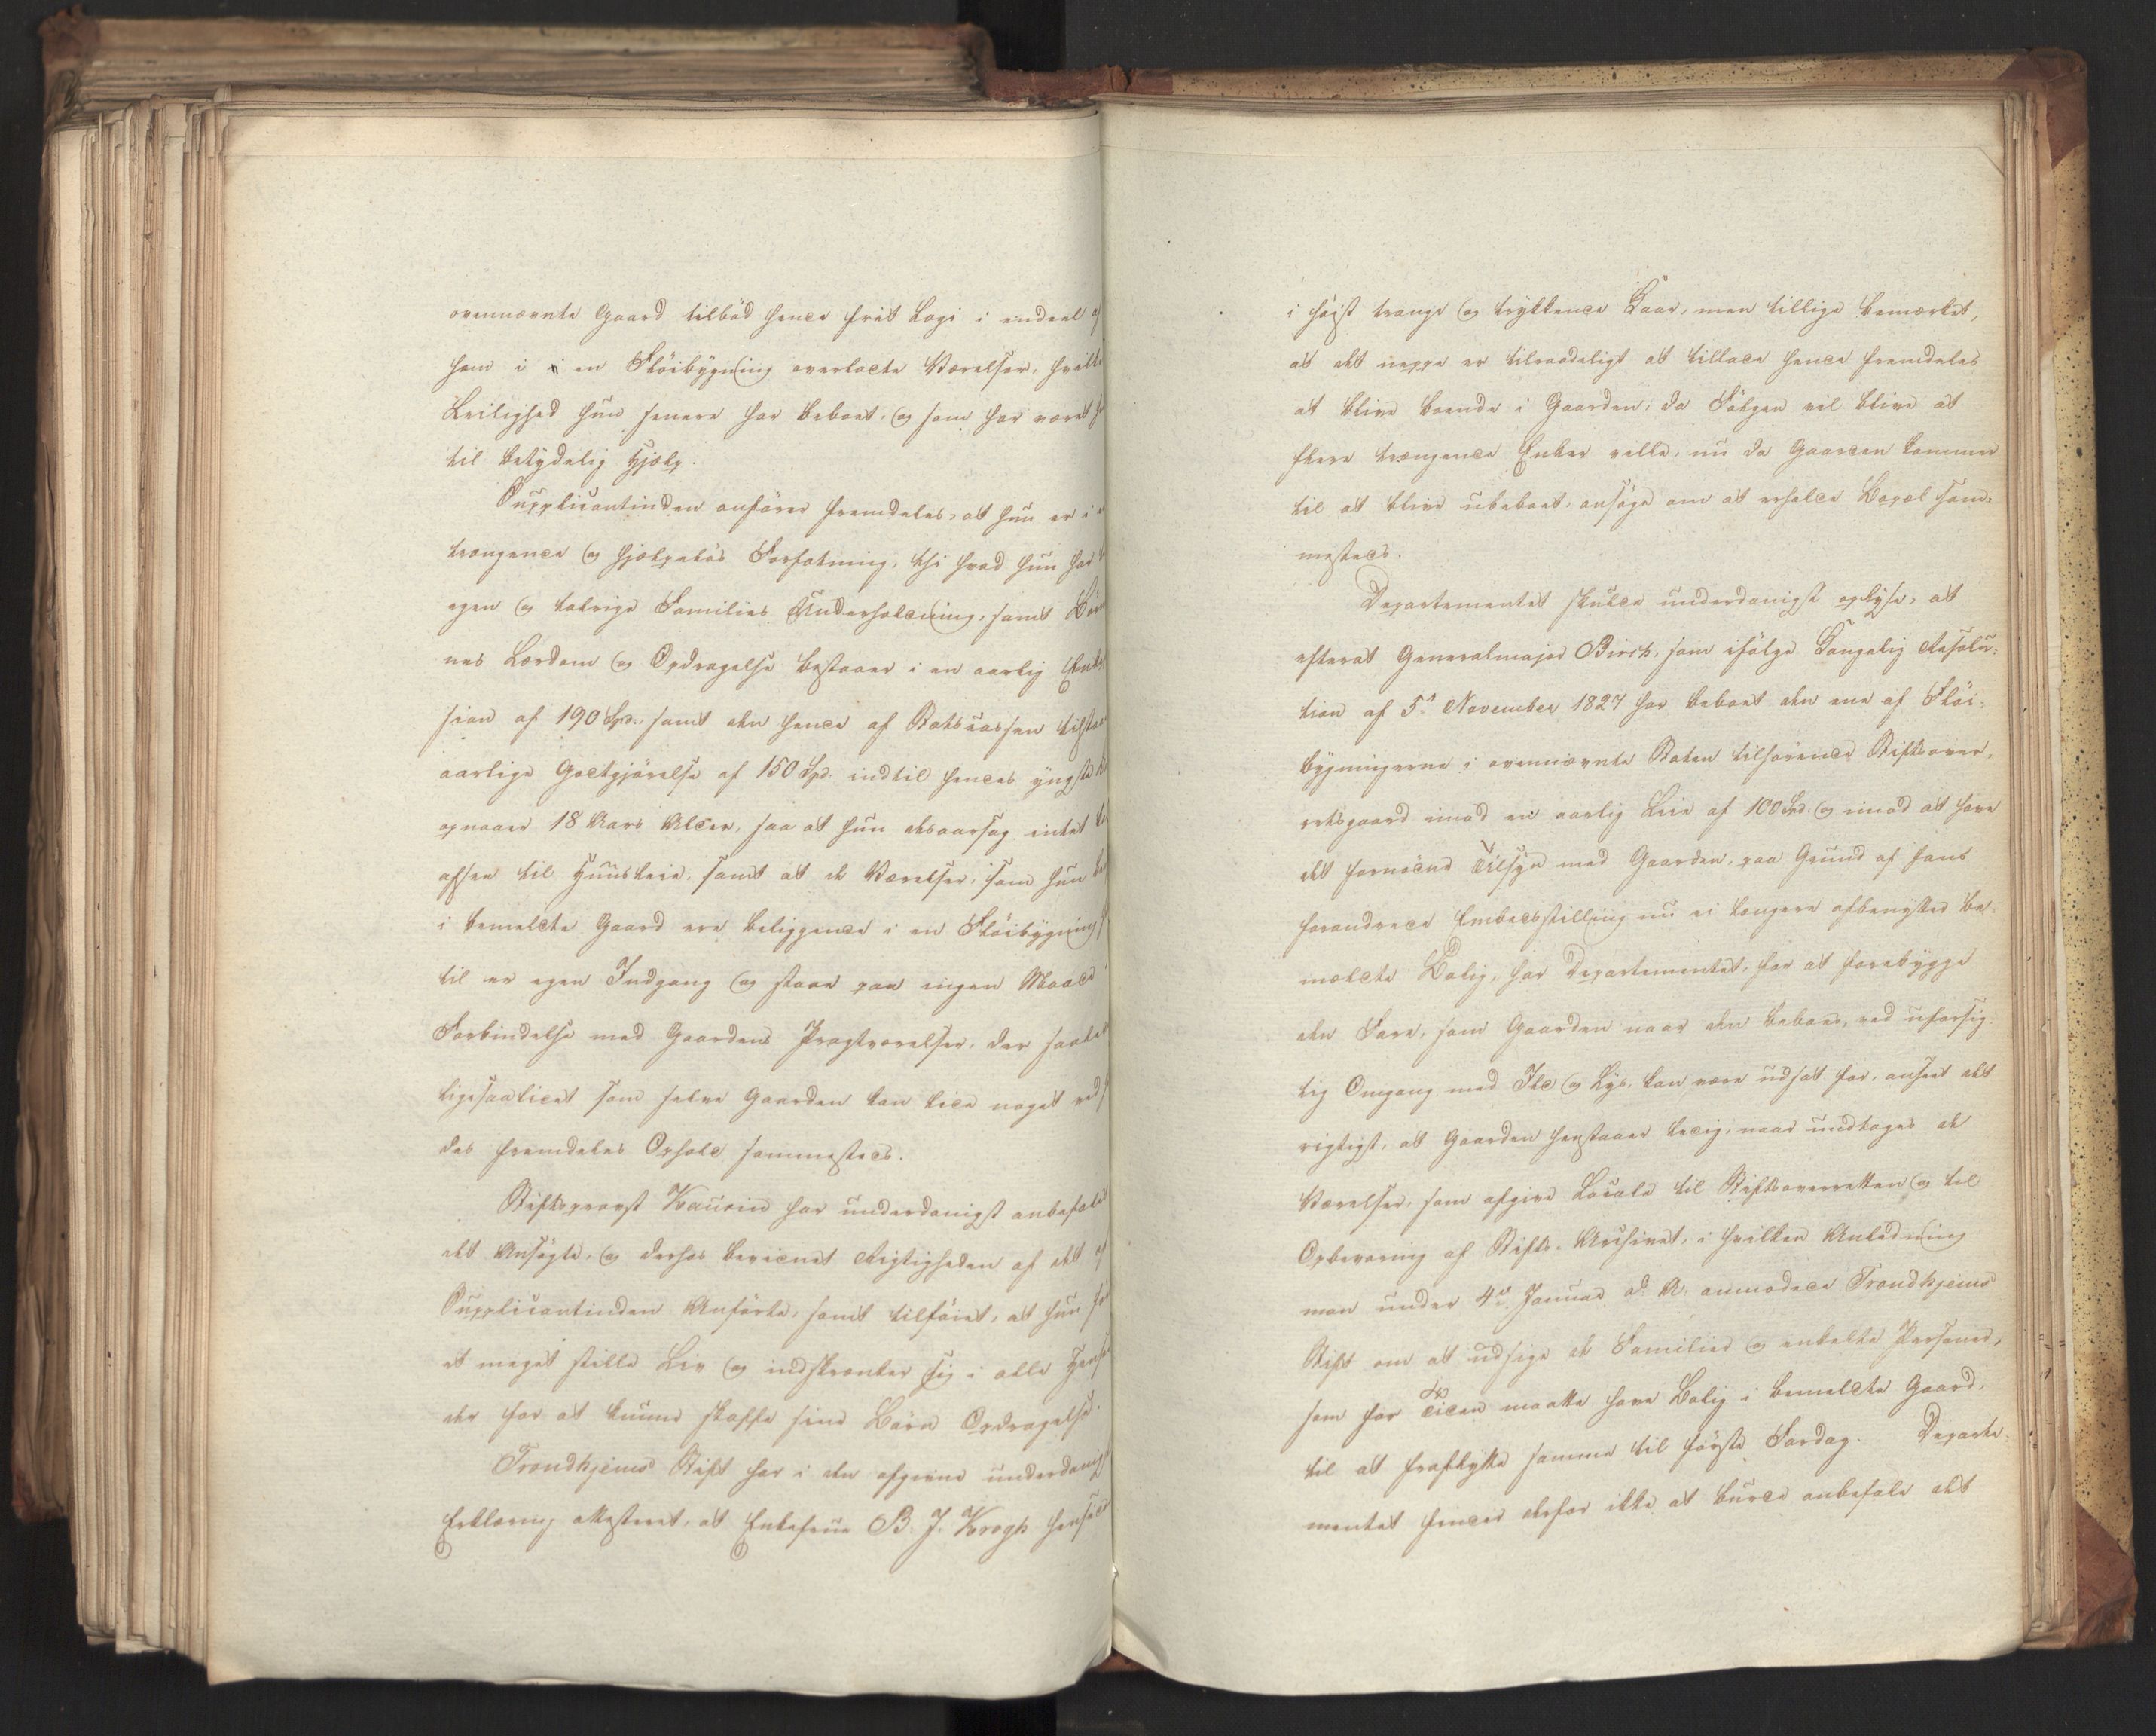 ovennævnte Gaard tilbød hende frit Logi i endeel af
ham i en Fløibygning overladte Værelser, hvilke
Leilighed hun senere har beboet, og som har været
til betydelig Hjælp.
Supplicantinden anfører fremdeles, at hun er i
trængende og hjælpeløs Forfatning, thi hvad hun har
egen og talrige Families Underholdning, samt Bør
nes Lærdom og Opdragelse bestaaer i en aarlig Enke
sion af 190 Spd., samt den hende af Statscassen tilstaa
aarlige Godtgjørelse af 150 Spd. indtil hendes yngste
opnaaer 18 Aars Alder, saa at hun desaarsag intet
afsee til Huusleie, samt at de Værelser, som hun
i bemeldte Gaard ere beliggende i en Fløibygning
til er egen Indgang og staae paa ingen Maade i
Forbindelse med Gaardens Pragtværelser, der saale
ligesaalidet som selve Gaarden kan lide noget ved
des fremdeles Ophold sammesteds.
Stiftsprovst Kaurin har underdanigst anbefalet
det Ansøgte, og derhos bevidnet Rigtigheden af det af
Supplicantinden Anførte, samt tilføiet, at hun
et meget stille Liv og indskrænker sig i alle Hense
der for at kunne skaffe sine Børn Opdragelse.
Trondhjems Stift har i den afgivne underdanig
Erklæring attesteret, at Enkefrue B. J. Krogh
i høist trange og trykkende Kaar, men tillige bemærket,
at det neppe er tilraadeligt at tillade hende fremdeles
at blive boende i Gaarden, da Følgen vil blive at
flere trængende Enker ville, nu da Gaarden kommer
til at blive ubeboet, ansøge om at erholde Bopæl sam-
mesteds.
Departementet skulde underdanigst oplyse, at
efterat Generalmajor Birch, som ifølge Kongelig Resolu-
tion af 5te November 1827 har beboet den ene af Fløi-
bygningerne i ovennævnte Staten tilhørende Stiftsover-
retsgaard imod en aarlig Leie af 100 Spd. og imod at have
det fornødne Tilsyn med Gaarden, paa Grund af hans
forandrede Embedsstilling nu ei længere afbenytter be-
meldte Bolig, har Departementet, for at forebygge
den Fare, som Gaarden naar den beboes, ved uforsig-
tig Omgang med Ild og Lys, kan være udsat for, anseet det
rigtigst, at Gaarden henstaaer ledig, naar undtages de
Værelser, som afgive Locale til Stiftsoverretten og til
Opbevaring af Stifts-Archivet, i hvilken Anledning
man under 4de Januar d. A. anmodede Trondhjems
Stift om at udsige de Familier og enkelte Personer,
som for Tiden maatte have Bolig i bemeldte Gaard,
til at fraflytte samme til første Fardag. Departe-
mentet finder derfor ikke at burde anbefale det